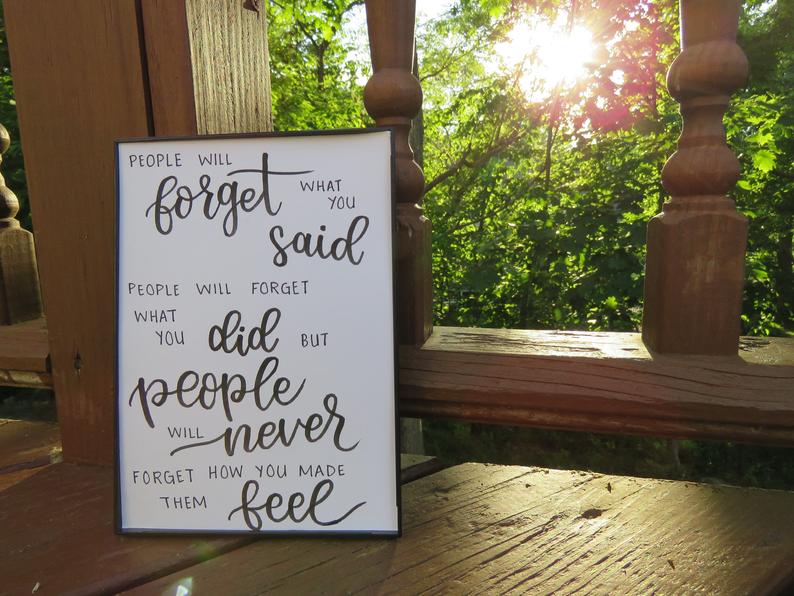 PEOPLE WILL
forget WHAT
YOU
said
PEOPLE WILL FORGET
WHAT
YOU did BUT
people
WILL never
FORGET HOW YOU MADE
THEM feel